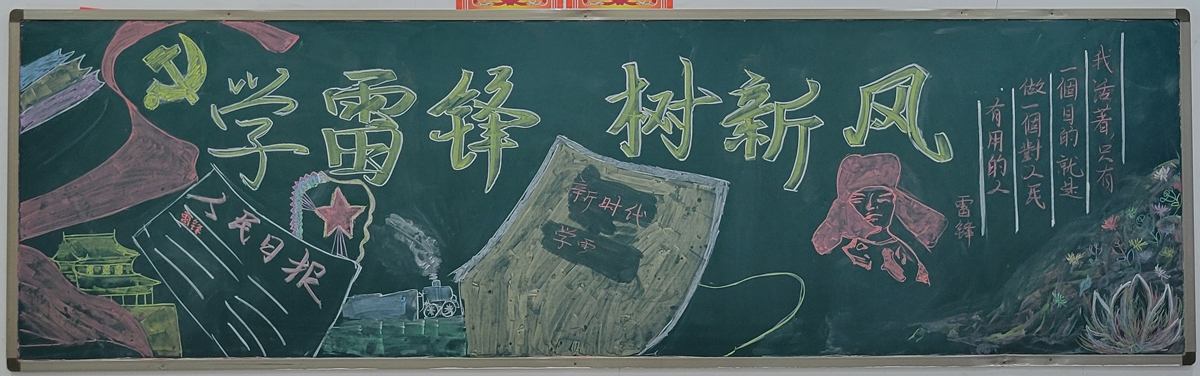 学雷锋 树新风
人民日报
雷锋
新时代
学雷
我活著,只有
一個目的就是
做一個對人民
有用的人
雷锋